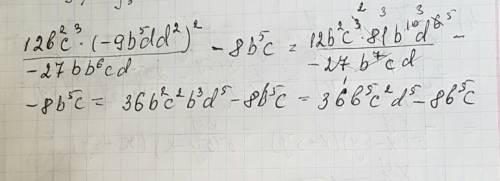 (12b²c³ · (-9b⁵dd²)²)/(-27bb⁶cd) - 8b⁵c = (12b²c³ · 81b¹⁰d⁶)/(-27b⁷cd) -
- 8b⁵c = 36b²c²b³d⁵ - 8b⁵c = 36b⁵c²d⁵ - 8b⁵c